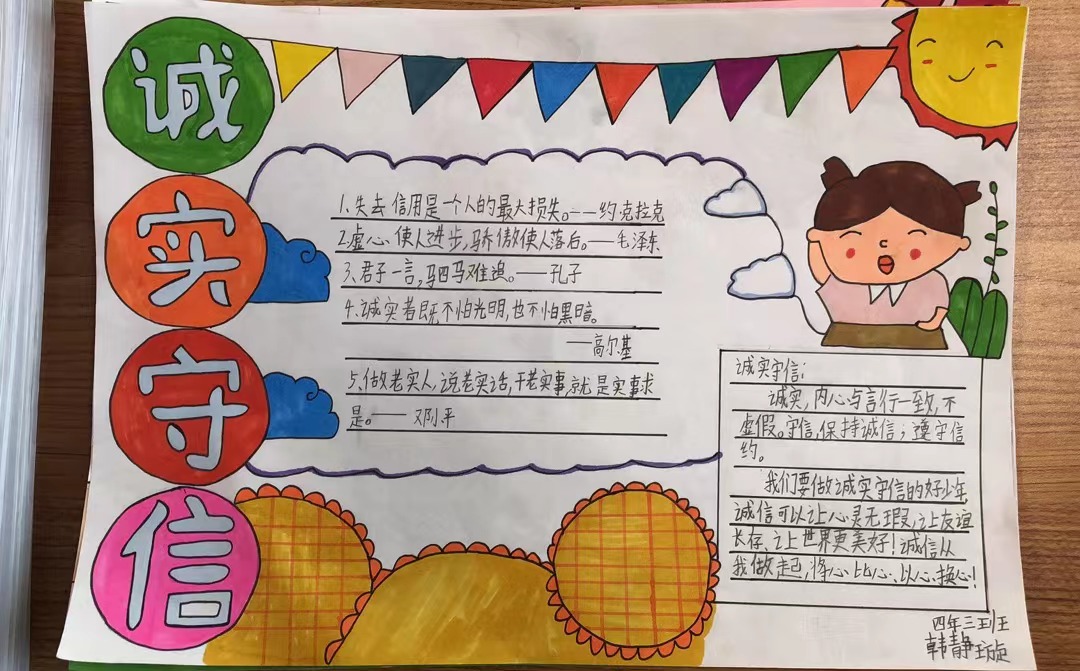 诚
实
守
信
1.失去信用是一个人的最大损失。——约克拉克
2.虚心使人进步,骄傲使人落后。——毛泽东
3、君子一言,驷马难追。——孔子
4.诚实者既不怕光明,也不怕黑暗。
——高尔基
5.做老实人,说老实话,干老实事,就是实事求
是。—— 邓小平
诚实守信:
诚实,内心与言行一致,不
虚假。守信,保持诚信;遵守信
约。
我们要做诚实守信的好少年,
诚信可以让心灵无瑕,让友谊
长存、让世界更美好!诚信从
我做起,将心比心、以心换心!
四年三班
韩静璇